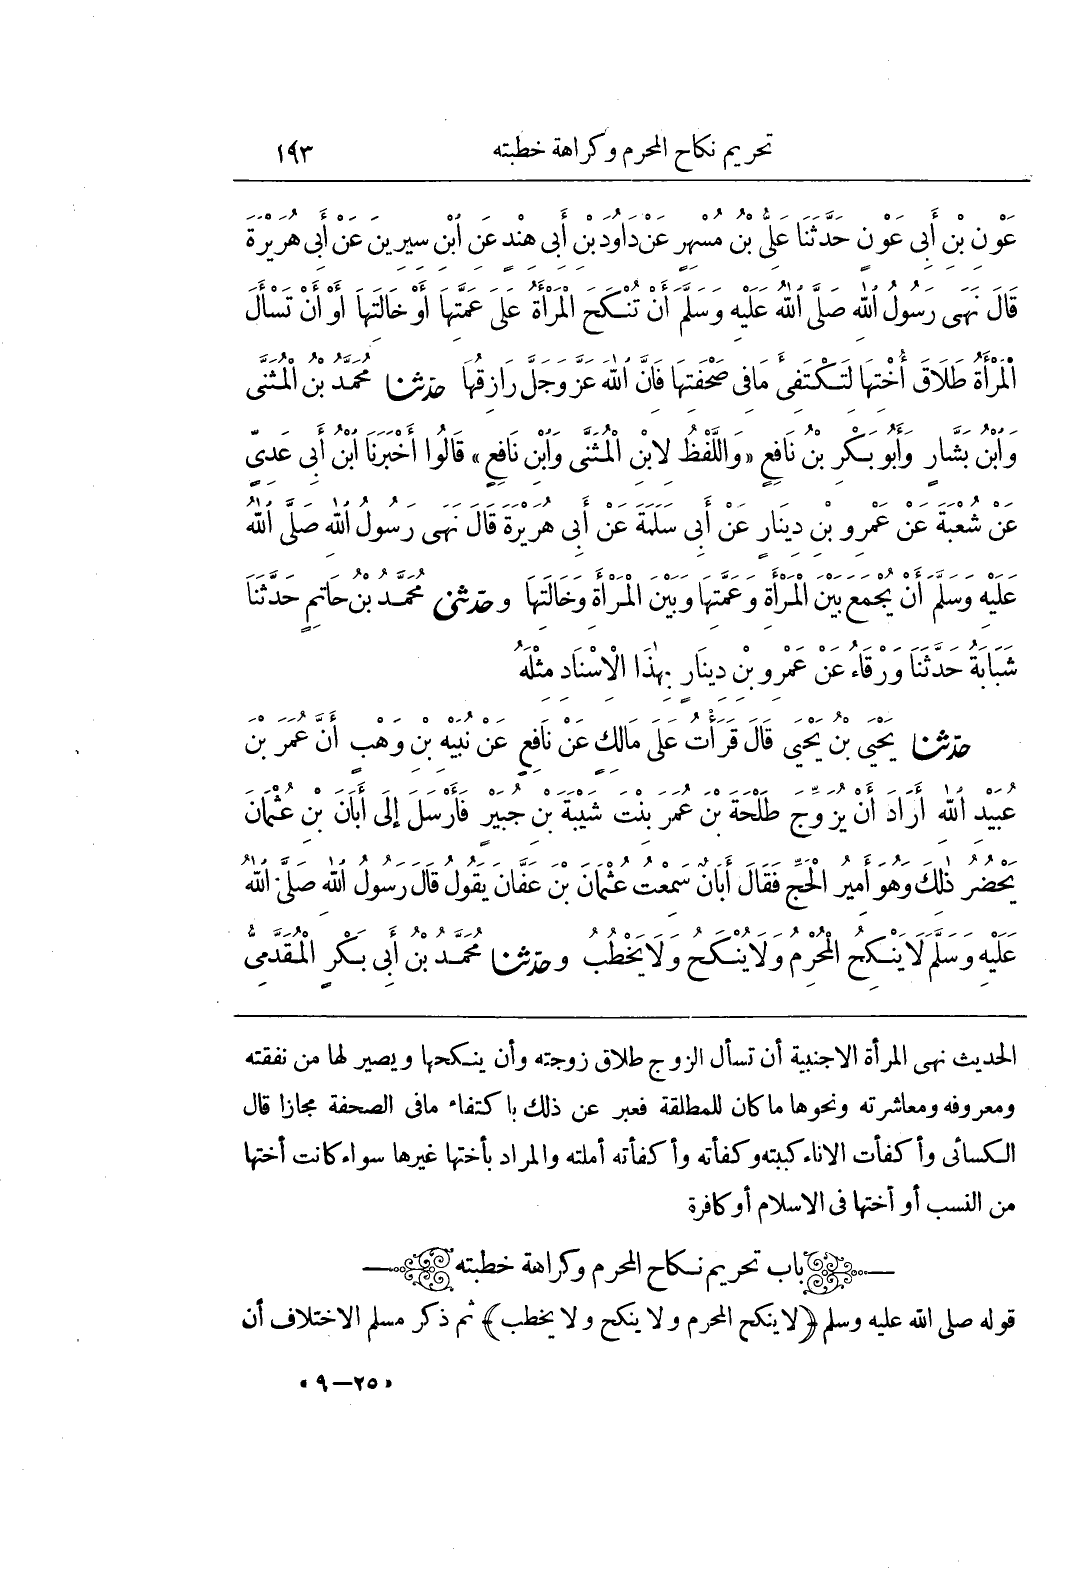 تحريم نكاح المحرم وكراهة خطبته ١٩٣
عَوْنِ بْنِ أَبِى عَوْنٍ حَدَّثَنَا عَلِىُّ بْنُ مُسْهِرٍ عَنْ دَاوُدَ بْنِ أَبِى هِنْدٍ عَنِ ابْنِ سِيرِينَ عَنْ أَبِى هُرَيْرَةَ
قَالَ نَهَى رَسُولُ اللهِ صَلَّى اللهُ عَلَيْهِ وَسَلَّمَ أَنْ تُنْكَحَ الْمَرْأَةُ عَلَى عَمَّتِهَا أَوْ خَالَتِهَا أَوْ أَنْ تَسْأَلَ
الْمَرْأَةُ طَلَاقَ أُخْتِهَا لِتَكْتَفِئَ مَا فِى صَحْفَتِهَا فَإِنَّ اللهَ عَزَّ وَجَلَّ رَازِقُهَا حدثنا مُحَمَّدُ بْنُ الْمُثَنَّى
وَابْنُ بَشَّارٍ وَأَبُو بَكْرِ بْنُ نَافِعٍ «وَاللَّفْظُ لِابْنِ الْمُثَنَّى وَابْنِ نَافِعٍ» قَالُوا أَخْبَرَنَا ابْنُ أَبِى عَدِىٍّ
عَنْ شُعْبَةَ عَنْ عَمْرِو بْنِ دِينَارٍ عَنْ أَبِى سَلَمَةَ عَنْ أَبِى هُرَيْرَةَ قَالَ نَهَى رَسُولُ اللهِ صَلَّى اللهُ
عَلَيْهِ وَسَلَّمَ أَنْ يُجْمَعَ بَيْنَ الْمَرْأَةِ وَعَمَّتِهَا وَبَيْنَ الْمَرْأَةِ وَخَالَتِهَا وحدثنى مُحَمَّدُ بْنُ حَاتِمٍ حَدَّثَنَا
شَبَابَةُ حَدَّثَنَا وَرْقَاءُ عَنْ عَمْرِو بْنِ دِينَارٍ بِهٰذَا الْاِسْنَادِ مِثْلَهُ
حدثنا يَحْيَى بْنُ يَحْيَى قَالَ قَرَأْتُ عَلَى مَالِكٍ عَنْ نَافِعٍ عَنْ نُبَيْهِ بْنِ وَهْبٍ أَنَّ عُمَرَ بْنَ
عُبَيْدِ اللهِ أَرَادَ أَنْ يُزَوِّجَ طَلْحَةَ بْنَ عُمَرَ بِنْتَ شَيْبَةَ بْنِ جُبَيْرٍ فَأَرْسَلَ إِلَى أَبَانَ بْنِ عُثْمَانَ
يَحْضُرُ ذٰلِكَ وَهُوَ أَمِيرُ الْحَجِّ فَقَالَ أَبَانٌ سَمِعْتُ عُثْمَانَ بْنَ عَفَّانَ يَقُولُ قَالَ رَسُولُ اللهِ صَلَّى اللهُ
عَلَيْهِ وَسَلَّمَ لَا يَنْكِحُ الْمُحْرِمُ وَلَا يُنْكَحُ وَلَا يَخْطُبُ وحدثنا مُحَمَّدُ بْنُ أَبِى بَكْرٍ الْمُقَدَّمِىُّ
الحديث نهى المرأة الاجنبية أن تسأل الزوج طلاق زوجته وأن ينكحها ويصير لها من نفقته
ومعروفه ومعاشرته ونحوها ما كان للمطلقة فعبر عن ذلك باكتفاء مافى الصحفة مجازا قال
الكسائى وأكفأت الاناء كببته وكفأته وأكفأته أملته والمراد بأختها غيرها سواء كانت أختها
من النسب أو أختها فى الاسلام أو كافرة
باب تحريم نكاح المحرم وكراهة خطبته
قوله صلى الله عليه وسلم ﴿لا ينكح المحرم ولا ينكح ولا يخطب﴾ ثم ذكر مسلم الاختلاف أن
«٢٥—٩»